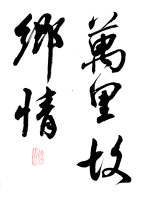 萬里故
鄉情